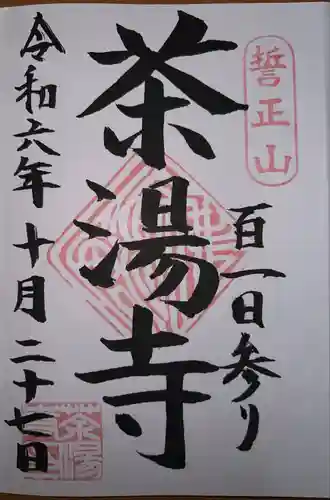 誓正山
百一日参り
茶湯寺
令和六年十月二十七日
茶湯